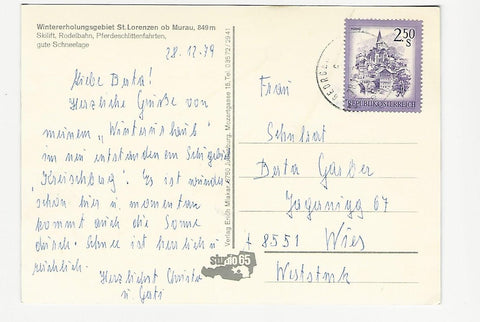 Wintererholungsgebiet St.Lorenzen ob Murau, 849m
Skilift, Rodelbahn, Pferdeschlittenfahrten,
gute Schneelage
28.12.79
Liebe Berta!
Herzliche Grüße von
meinem „Winterurlaub"
im neu entstandenen Schigebiet
„Kreischberg". Es ist wunder-
schön hier u. momentan
kommt auch die Sonne
durch. Schnee ist herrlich u.
reichlich.
Herzlichst Christa
u. Gerti
Verlag Erich Mlakar, 8750 Judenburg, Mozartgasse 18, Tel. 0 35 72 / 29 41
studio 65
2.50
S
REPUBLIK ÖSTERREICH
Frau
Schulrat
Berta Garber
Jagernigg 67
A 8551 Wies
Weststmk